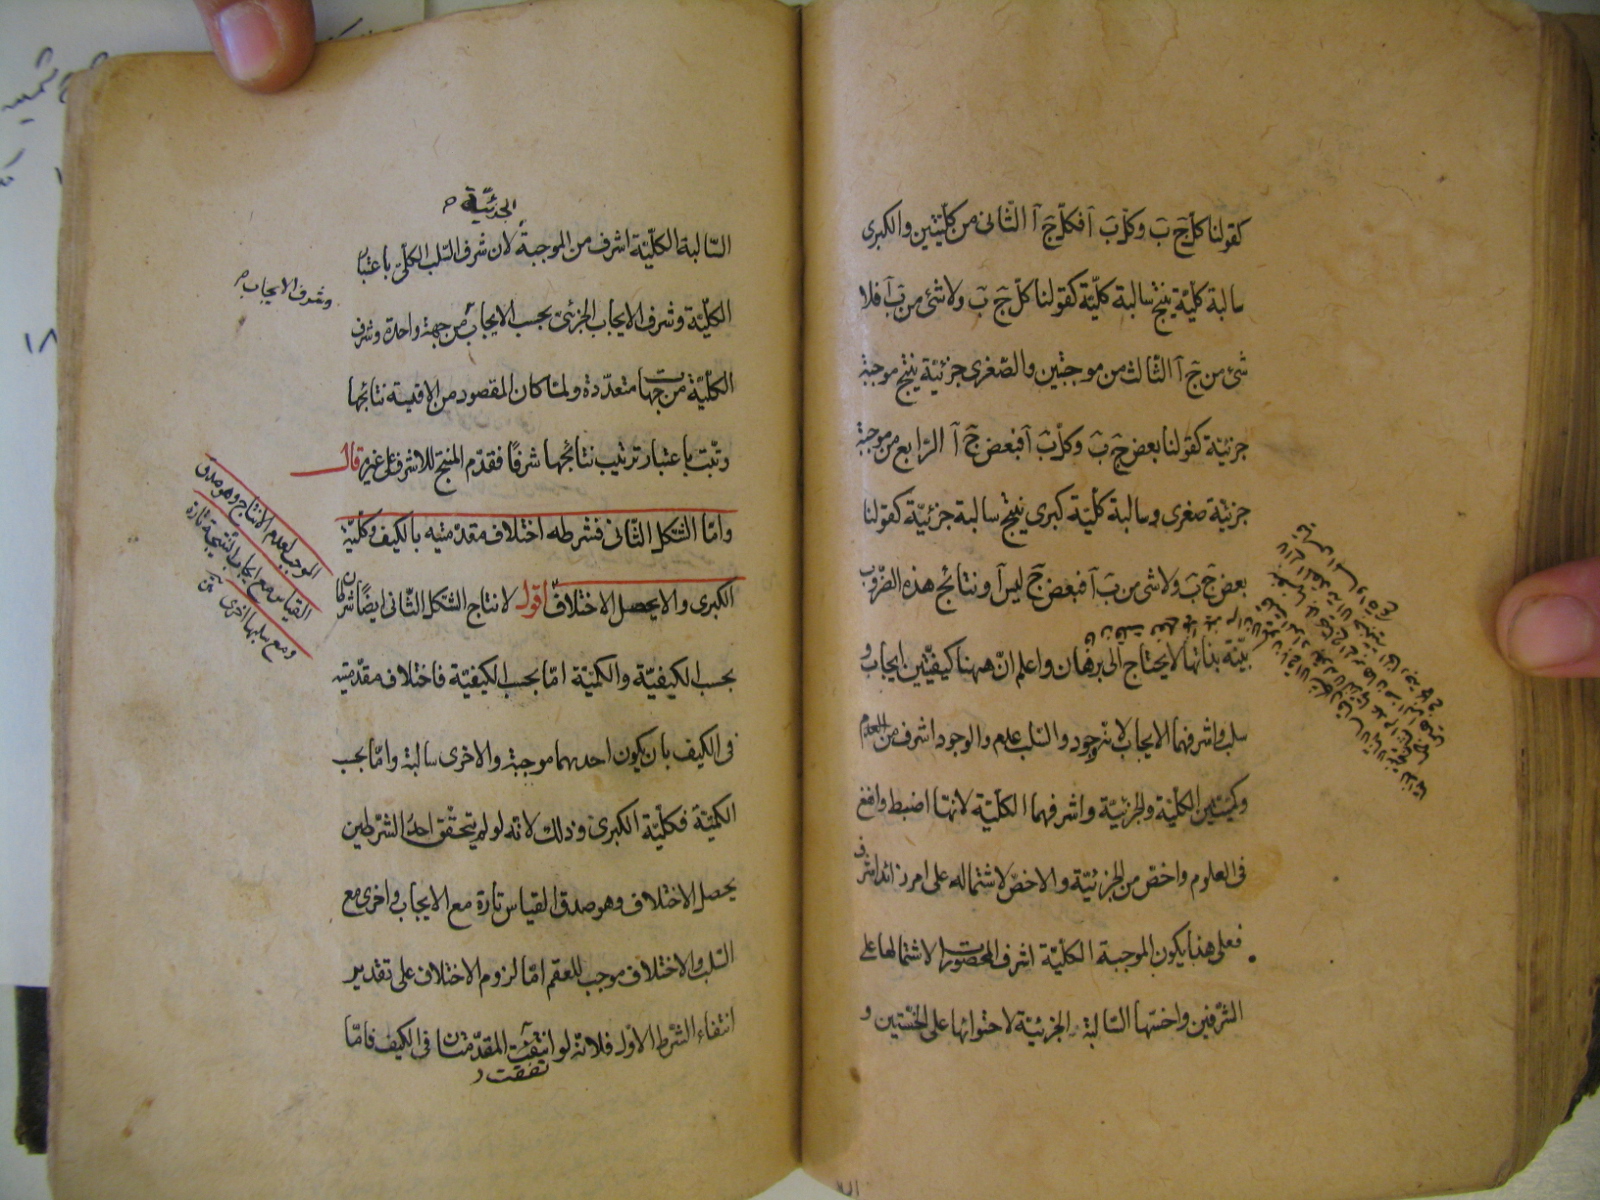 كقولنا كلّ جَ بَ وكلّ بَ آ فكلّ جَ آ الثّانى من كلّيّتين والكبرى
سالبة كليّة ينتج سالبة كلّيّة كقولنا كلّ جَ بَ ولا شئ من بَ آ فلا
شئ من جَ آ الثّالث من موجبتين والصّغرى جزئيّة ينتج موجبة
جزئيّة كقولنا بعض جَ بَ وكلّ بَ آ فبعض جَ آ الرّابع من موجبة
جزئيّة صغرى وسالبة كلّيّة كبرى ينتج سالبة جزئيّة كقولنا
بعض جَ بَ ولا شئ من بَ آ فبعض جَ ليس آ ونتائج هذه الضّروب
بيّنة بذاتها لا يحتاج الى برهان واعلم انّ ههنا كيفيّتين ايجاب و
سلب واشرفهما الايجاب لانه وجود والسّلب عدم والوجود اشرف من العدم
وكميّتين الكلّيّة والجزئيّة واشرفهما الكلّيّة لانّها اضبط وانفع
فى العلوم واخصّ من الجزئيّة والاخصّ لاشتماله على امر زائد اشرف
فعلى هذا يكون الموجبة الكلّيّة اشرف المحصورات لاشتمالها على
الشّرفين واخسّها السّالبة الجزئيّة لاحتوائها على الخسّتين و
الجزئيّة
السّالبة الكلّيّة اشرف من الموجبة لان شرف السّلب الكلّى باعتبار
الكلّيّة وشرف الايجاب الجزئى بحسب الايجاب من جهة واحدة وشرف
وشرف الايجاب
الكلّيّة من جهات متعدّدة ولمّا كان المقصود من الاقيسة نتائجها
رتّبت باعتبار ترتيب نتائجها شرفًا فقدّم المنتج للاشرف على غيره قال
وامّا الشّكل الثّانى فشرطه اختلاف مقدمتيه بالكيف وكلّيّة
الكبرى والا يحصل الاختلاف اقول لانتاج الشّكل الثّانى ايضًا شرطان
الموجب لعدم الانتاج وهو صدق
القياس مع ايجاب النتيجة تارة
ومع سلبها اخرى
بحسب الكيفيّة والكمّيّة امّا بحسب الكيفيّة فاختلاف مقدّمتيه
فى الكيف بان يكون احديهما موجبة والاخرى سالبة وامّا بحسب
الكمّيّة فكلّيّة الكبرى وذلك لانه لو لم يتحقّق احد الشّرطين
يحصل الاختلاف وهو صدق القياس تارة مع الايجاب واخرى مع
السّلب والاختلاف موجب للعقم امّا لزوم الاختلاف على تقدير
انتفاء الشّرط الاوّل فلانّه لو اتفقت المقدّمتان فى الكيف فامّا
تفقت